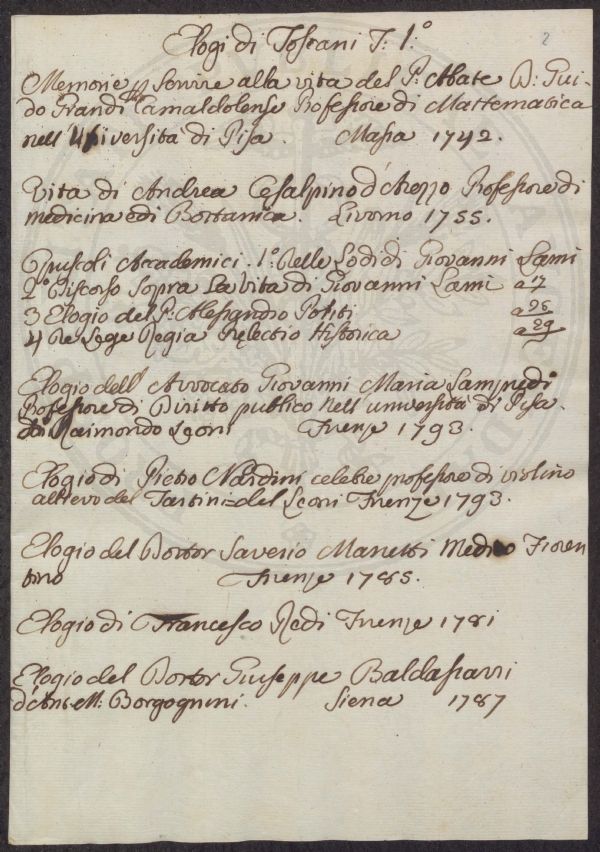 Elogi di Toscani T: 1.°
2
Memorie p servire alla vita del P: Abate D: Gui-
do Grandi Camaldolense Professore di Mattematica
nell' Università di Pisa. Massa 1742.
Vita di Andrea Cesalpino d'Arezzo Professore di
medicina e di Bottanica. Livorno 1755.
Opuscoli Accademici. 1.° Delle Lodi di Giovanni Lami
2.° Discorso sopra La Vita di Giovanni Lami a 7
3 Elogio del P. Alessandro Politi a
4 De Lege Regia Relectio Historica a 29
Elogio dell' Avvocato Giovanni Maria Lampredi
Professore di Diritto publico nell' università di Pisa.
Raimondo Leoni Firenze 1793.
Elogio di Pietro Nardini celebre professore di violino
allievo del Tartini = del Leoni Firenze 1793.
Elogio del Dottor Saverio Manetti Medico Fioren
tino Firenze 1785.
Elogio di Francesco Redi Firenze 1781
Elogio del Dottor Giuseppe Baldassarri
Borgognini. Siena 1787